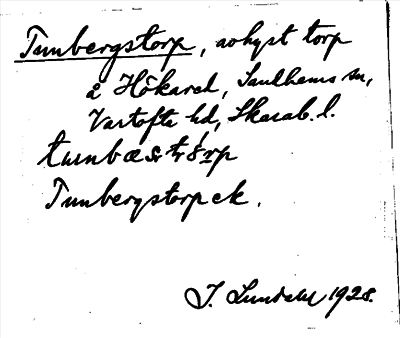 Tunbergstorp, avhyst torp
å Hökared, Saulhems sn,
Vartofta hd, Skarab. l.
Tunbergstorp ek.
J. Lundahl 1928.